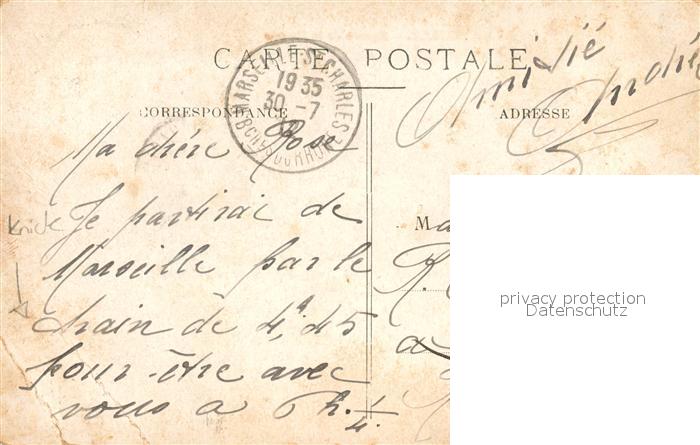 CARTE POSTALE
MARSEILLE-ST CHARLES
19 35
30 -7
BCHES DU RHONE
Amitié
André
CORRESPONDANCE
ADRESSE
Ma chére Rose
Je partirai de
Marseille par le
train de 4h 45
pour être avec
vous a 6 h. 1/4.
Knick
Ma
R.
a
privacy protection
Datenschutz